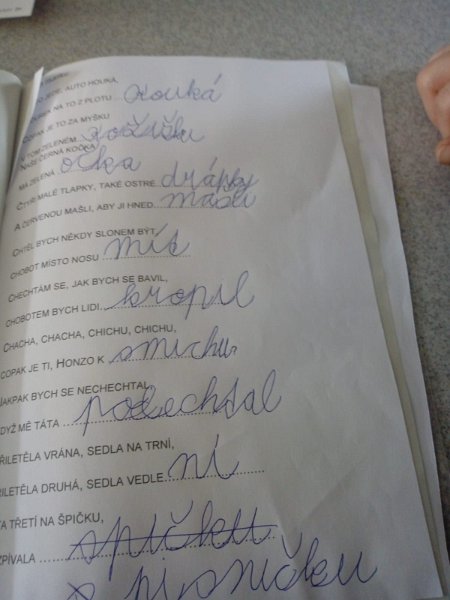 JEDE, AUTO HOUKÁ,
NA TO Z PLOTU kouká
COPAK JE TO ZA MYŠKU
V TOM ZELENÉM kožíšku
NAŠE ČERNÁ KOČKA
MÁ ZELENÁ očka
ČTYŘI MALÉ TLAPKY, TAKÉ OSTRÉ drápky
A ČERVENOU MAŠLI, ABY JI HNED mašli
CHTĚL BYCH NĚKDY SLONEM BÝT,
CHOBOT MÍSTO NOSU mít
CHECHTÁM SE, JAK BYCH SE BAVIL,
CHOBOTEM BYCH LIDI kropil
CHACHA, CHACHA, CHICHU, CHICHU,
COPAK JE TI, HONZO K smíchu
JAKPAK BYCH SE NECHECHTAL,
DYŽ MĚ TÁTA polechtal
ŘILETĚLA VRÁNA, SEDLA NA TRNÍ,
ŘILETĚLA DRUHÁ, SEDLA VEDLE ní
TA TŘETÍ NA ŠPIČKU,
ZPÍVALA spičku
písničku